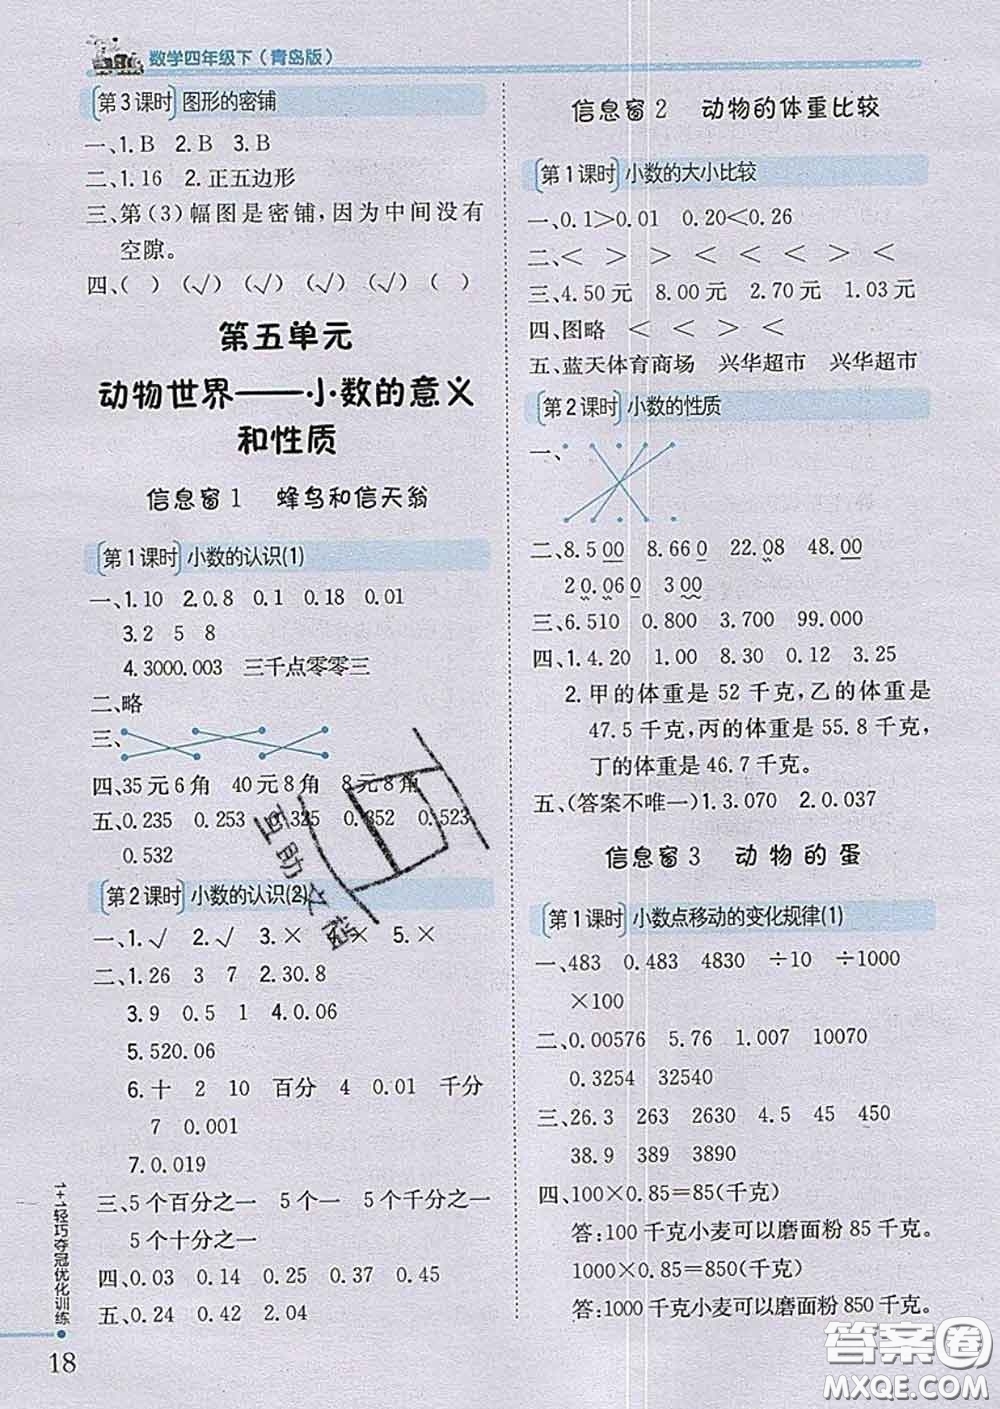 数学四年级下（青岛版）
第3课时 图形的密铺
一、1.B 2.B 3.B
二、1.16 2.正五边形
三、第（3）幅图是密铺，因为中间没有
空隙。
四、( ) (√) (√) (√) (√) ( )
第五单元
动物世界——小数的意义
和性质
信息窗1 蜂鸟和信天翁
第1课时 小数的认识(1)
一、1.10 2.0.8 0.1 0.18 0.01
3.2 5 8
4.3000.003 三千点零零三
二、略
三、
四、35元6角 40元8角 8元8角
五、0.235 0.253 0.325 0.352 0.523
0.532
第2课时 小数的认识(2)
一、1.√ 2.√ 3.× 4.× 5.×
二、1.26 3 7 2.30.8
3.9 0.5 1 4.0.06
5.520.06
6.十 2 10 百分 4 0.01 千分
7 0.001
7.0.019
三、5个百分之一 5个一 5个千分之一
5个十分之一
四、0.03 0.14 0.25 0.37 0.45
五、0.24 0.42 2.04
1+1轻巧夺冠优化训练
18
信息窗2 动物的体重比较
第1课时 小数的大小比较
一、0.1>0.01 0.20<0.26
二、< > < > < < > < <
三、4.50元 8.00元 2.70元 1.03元
四、图略 < < > <
五、蓝天体育商场 兴华超市 兴华超市
第2课时 小数的性质
一、
二、8.500 8.660 22.08 48.00
20.060 300
三、6.510 0.800 3.700 99.000
四、1.4.20 1.00 8.30 0.12 3.25
2.甲的体重是52千克，乙的体重是
47.5千克，丙的体重是55.8千克，
丁的体重是46.7千克。
五、(答案不唯一)1.3.070 2.0.037
信息窗3 动物的蛋
第1课时 小数点移动的变化规律(1)
一、483 0.483 4830 ÷10 ÷1000
×100
二、0.00576 5.76 1.007 10070
0.3254 32540
三、26.3 263 2630 4.5 45 450
38.9 389 3890
四、100×0.85=85(千克)
答：100千克小麦可以磨面粉85千克。
1000×0.85=850(千克)
答：1000千克小麦可以磨面粉850千克。
答案圈
MXQE.COM